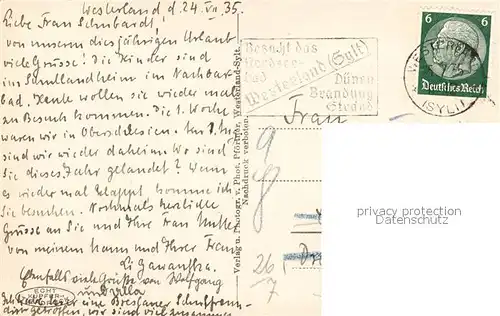 Westerland, d. 24. VII. 35.
Liebe Frau Schubardt!
von unserm diesjährigen Urlaub
viele Grüsse! Die Kinder sind
im Schullandheim im Nachbar-
bad. Heute wollen sie wieder mal
zu Besuch kommen. Die 1. Woche
waren wir in Oberschlesien.
wir wieder daheim. Wo sind
Sie dieses Jahr gelandet? Wenn
es wieder mal klappt komme ich
Sie besuchen. Nochmals herzliche
Grüsse an Sie und Ihre Frau Mutter
von meinem Mann und Ihrer Frau
Ebenfalls viele Grüße von Wolfgang
und Ulla
Ich habe hier eine Breslauer Schulfreun-
din getroffen, wir sind viel zusammen
ECHT
KUPFER
Verlag u. Photogr. v. Phot. Pförtner, Westerland-Sylt.
Nachdruck verboten.
Besucht das
Nordsee-
bad
Westerland (Sylt)
Dünen
Brandung
Strand
WESTERLAND
(SYLT)
6 6
Deutsches Reich
Frau
9
8
26/7
privacy protection
watermark